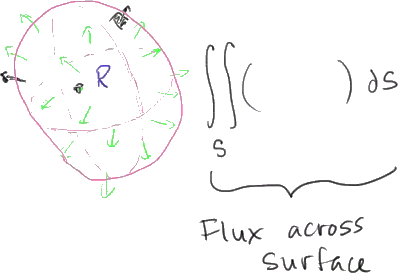 R
∬( ) ds
S
Flux across
surface